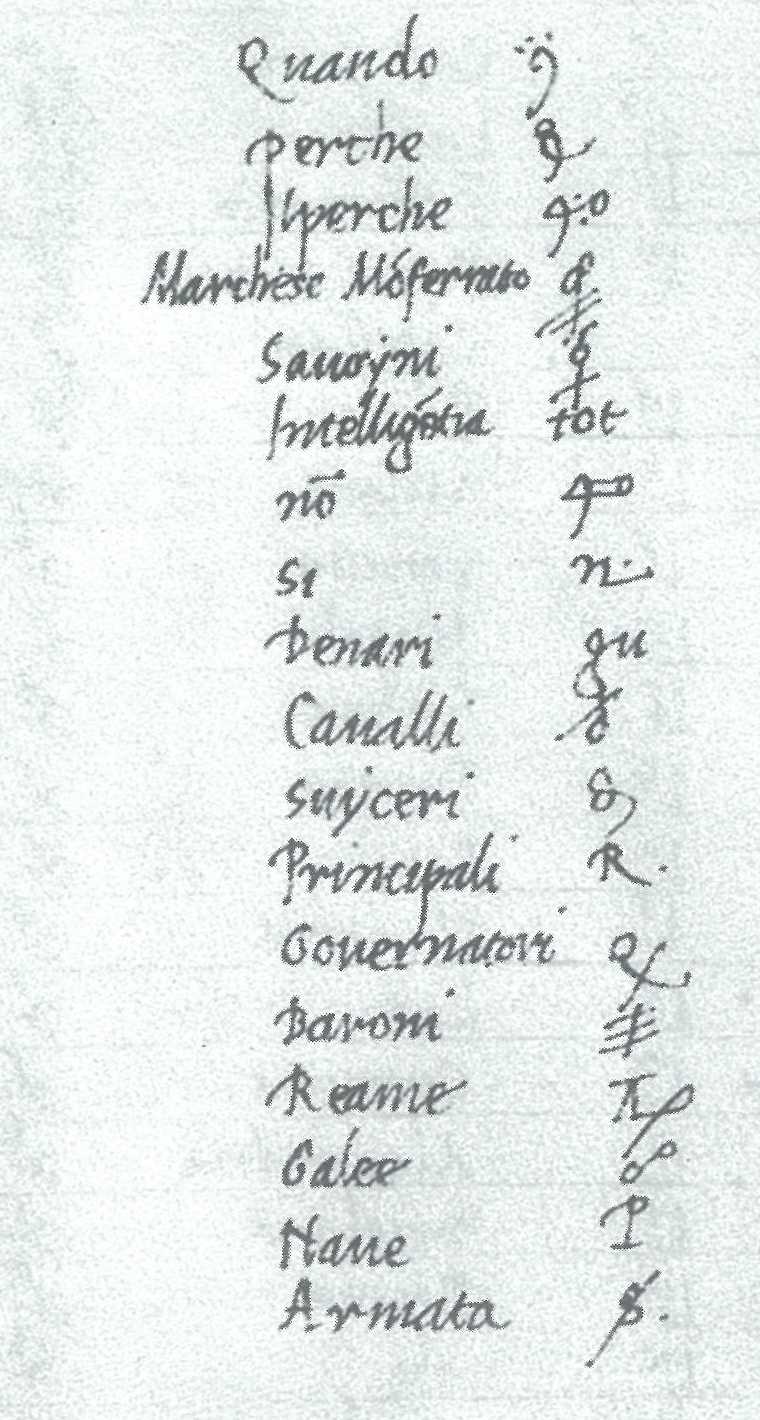 Quando
perche
Ilperche
Marchese Mōferrato
Sauoyni
Intelligētia tot
nō
si n.
Denari gu
Caualli
Suyceri
Principali R.
Gouernatori
Baroni
Reame
Galee
Naue P
Armata